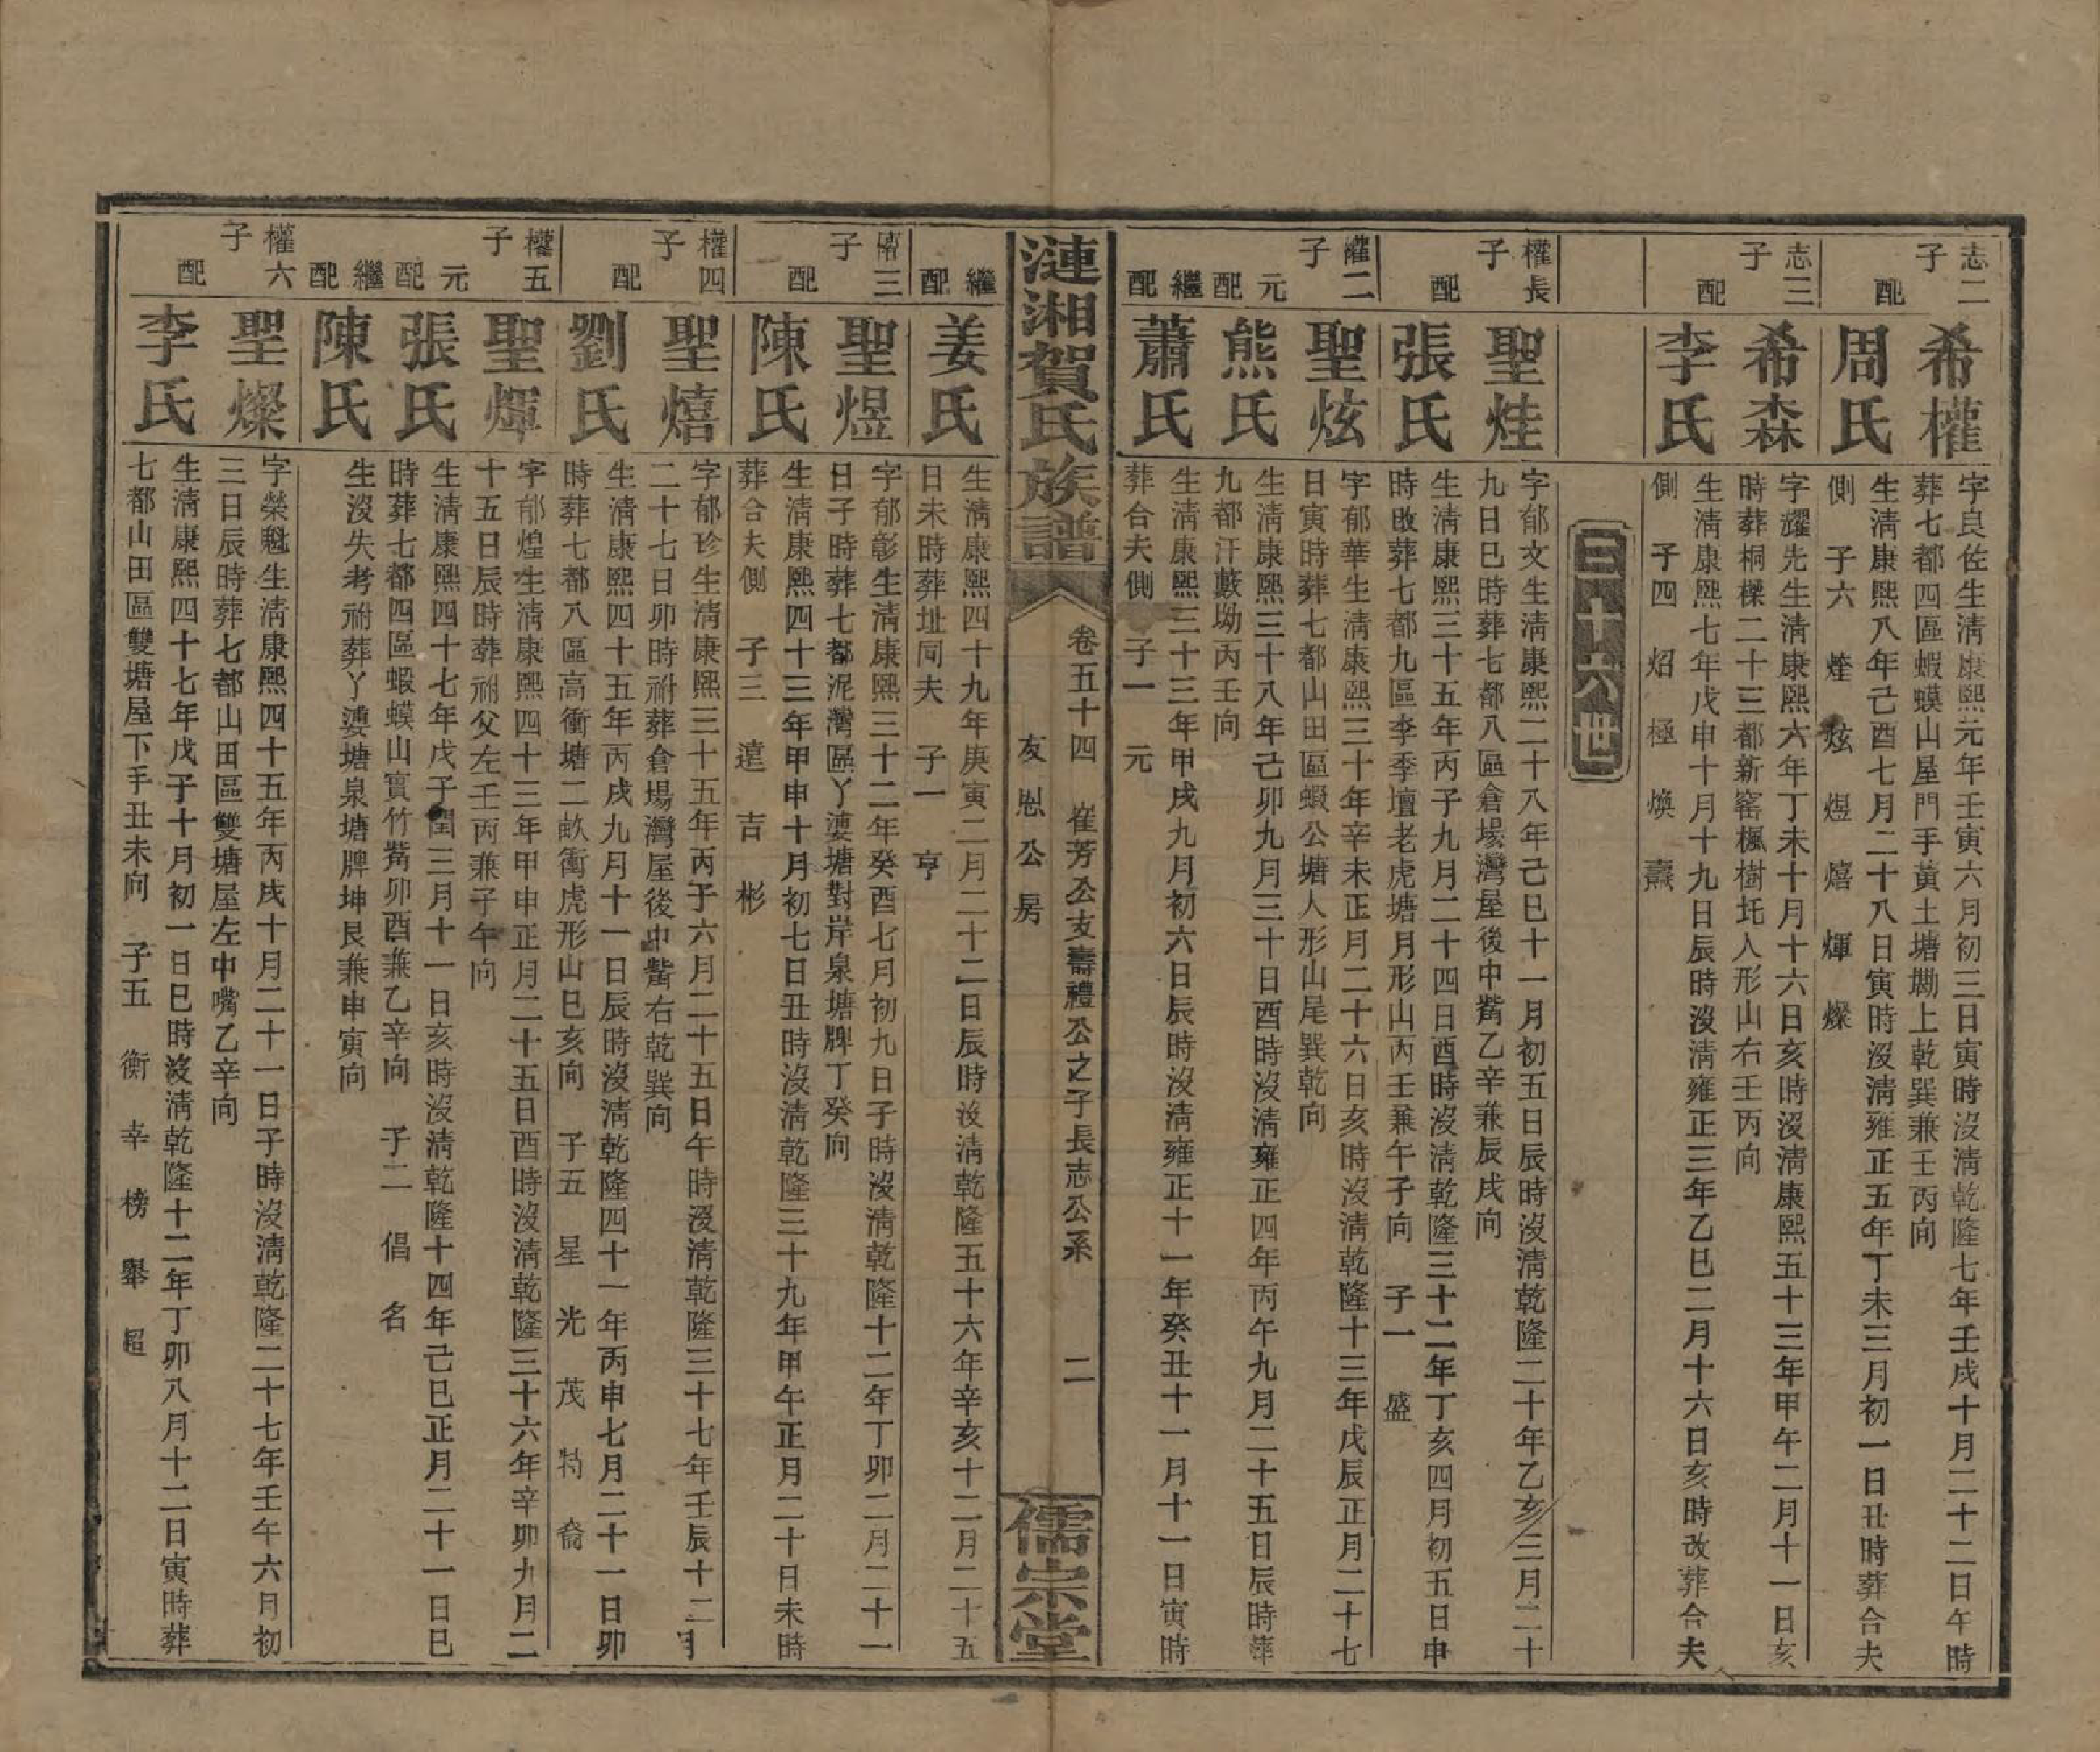 志二子
希權
字良佐生淸康熙元年壬寅六月初三日寅時沒淸乾隆七年壬戌十月二十二日午時
葬七都四區蝦蟆山屋門手黃土塘勘上乾巽兼壬丙向
配
周氏
生淸康熙八年己酉七月二十八日寅時沒淸雍正五年丁未三月初一日丑時葬合夫
側 子六 烓 炫 煜 熺 煇 燦
志三子
希森
字耀先生淸康熙六年丁未十月十六日亥時沒淸康熙五十三年甲午二月十一日亥
時葬桐樑二十三都新窰楓樹圫人形山右壬丙向
配
李氏
生淸康熙七年戊申十月十九日辰時沒淸雍正三年乙巳二月十六日亥時改葬合夫
側 子四 炤 極 煥 燾
三十六世
權長子
聖烓
字郁文生淸康熙二十八年己巳十一月初五日辰時沒淸乾隆二十年乙亥三月二十
九日巳時葬七都八區倉場灣屋後中觜乙辛兼辰戌向
配
張氏
生淸康熙三十五年丙子九月二十四日酉時沒淸乾隆三十二年丁亥四月初五日申
時改葬七都九區李李壇老虎塘月形山丙壬兼午子向 子一 盛
權二子
聖炫
字郁華生淸康熙三十年辛未正月二十六日亥時沒淸乾隆十三年戊辰正月二十七
日寅時葬七都山田區蝦公塘人形山尾巽乾向
元配
熊氏
生淸康熙三十八年己卯九月三十日酉時沒淸雍正四年丙午九月二十五日辰時葬
九都汗藪坳丙壬向
繼配
蕭氏
生淸康熙三十三年甲戌九月初六日辰時沒淸雍正十一年癸丑十一月十一日寅時
葬合夫側 子一 元
漣湘賀氏族譜
卷五十四 崔芳公支壽禮公之子長志公系 二
友恕公房
儒宗堂
繼配
姜氏
生淸康熙四十九年庚寅二月二十二日辰時沒淸乾隆五十六年辛亥十二月二十五
日未時葬址同夫 子一 亨
權三子
聖煜
字郁彰生淸康熙三十二年癸酉七月初九日子時沒淸乾隆十二年丁卯二月二十一
日子時葬七都泥灣區丫婆塘對岸泉塘牌丁癸向
配
陳氏
生淸康熙四十三年甲申十月初七日丑時沒淸乾隆三十九年甲午正月二十日未時
葬合夫側 子三 遠 吉 彬
權四子
聖熺
字郁珍生淸康熙三十五年丙子六月二十五日午時沒淸乾隆三十七年壬辰十二月
二十七日卯時祔葬倉場灣屋後中觜右乾巽向
配
劉氏
生淸康熙四十五年丙戌九月十一日辰時沒淸乾隆四十一年丙申七月二十一日卯
時葬七都八區高衝塘二畝衝虎形山巳亥向 子五 星 光 茂 特 裔
權五子
聖煇
字郁煌生淸康熙四十三年甲申正月二十五日酉時沒淸乾隆三十六年辛卯九月二
十五日辰時葬祔父左壬丙兼子午向
元配
張氏
生淸康熙四十七年戊子閏三月十一日亥時沒淸乾隆十四年己巳正月二十一日巳
時葬七都四區蝦蟆山實竹觜卯酉兼乙辛向 子二 倡 名
繼配
陳氏
生沒失考祔葬丫婆塘泉塘牌坤艮兼申寅向
權六子
聖燦
字榮魁生淸康熙四十五年丙戌十月二十一日子時沒淸乾隆二十七年壬午六月初
三日辰時葬七都山田區雙塘屋左中嘴乙辛向
配
李氏
生淸康熙四十七年戊子十月初一日巳時沒淸乾隆十二年丁卯八月十二日寅時葬
七都山田區雙塘屋下手丑未向 子五 衡 幸 榜 舉 超